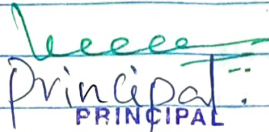 Principal.
PRINCIPAL